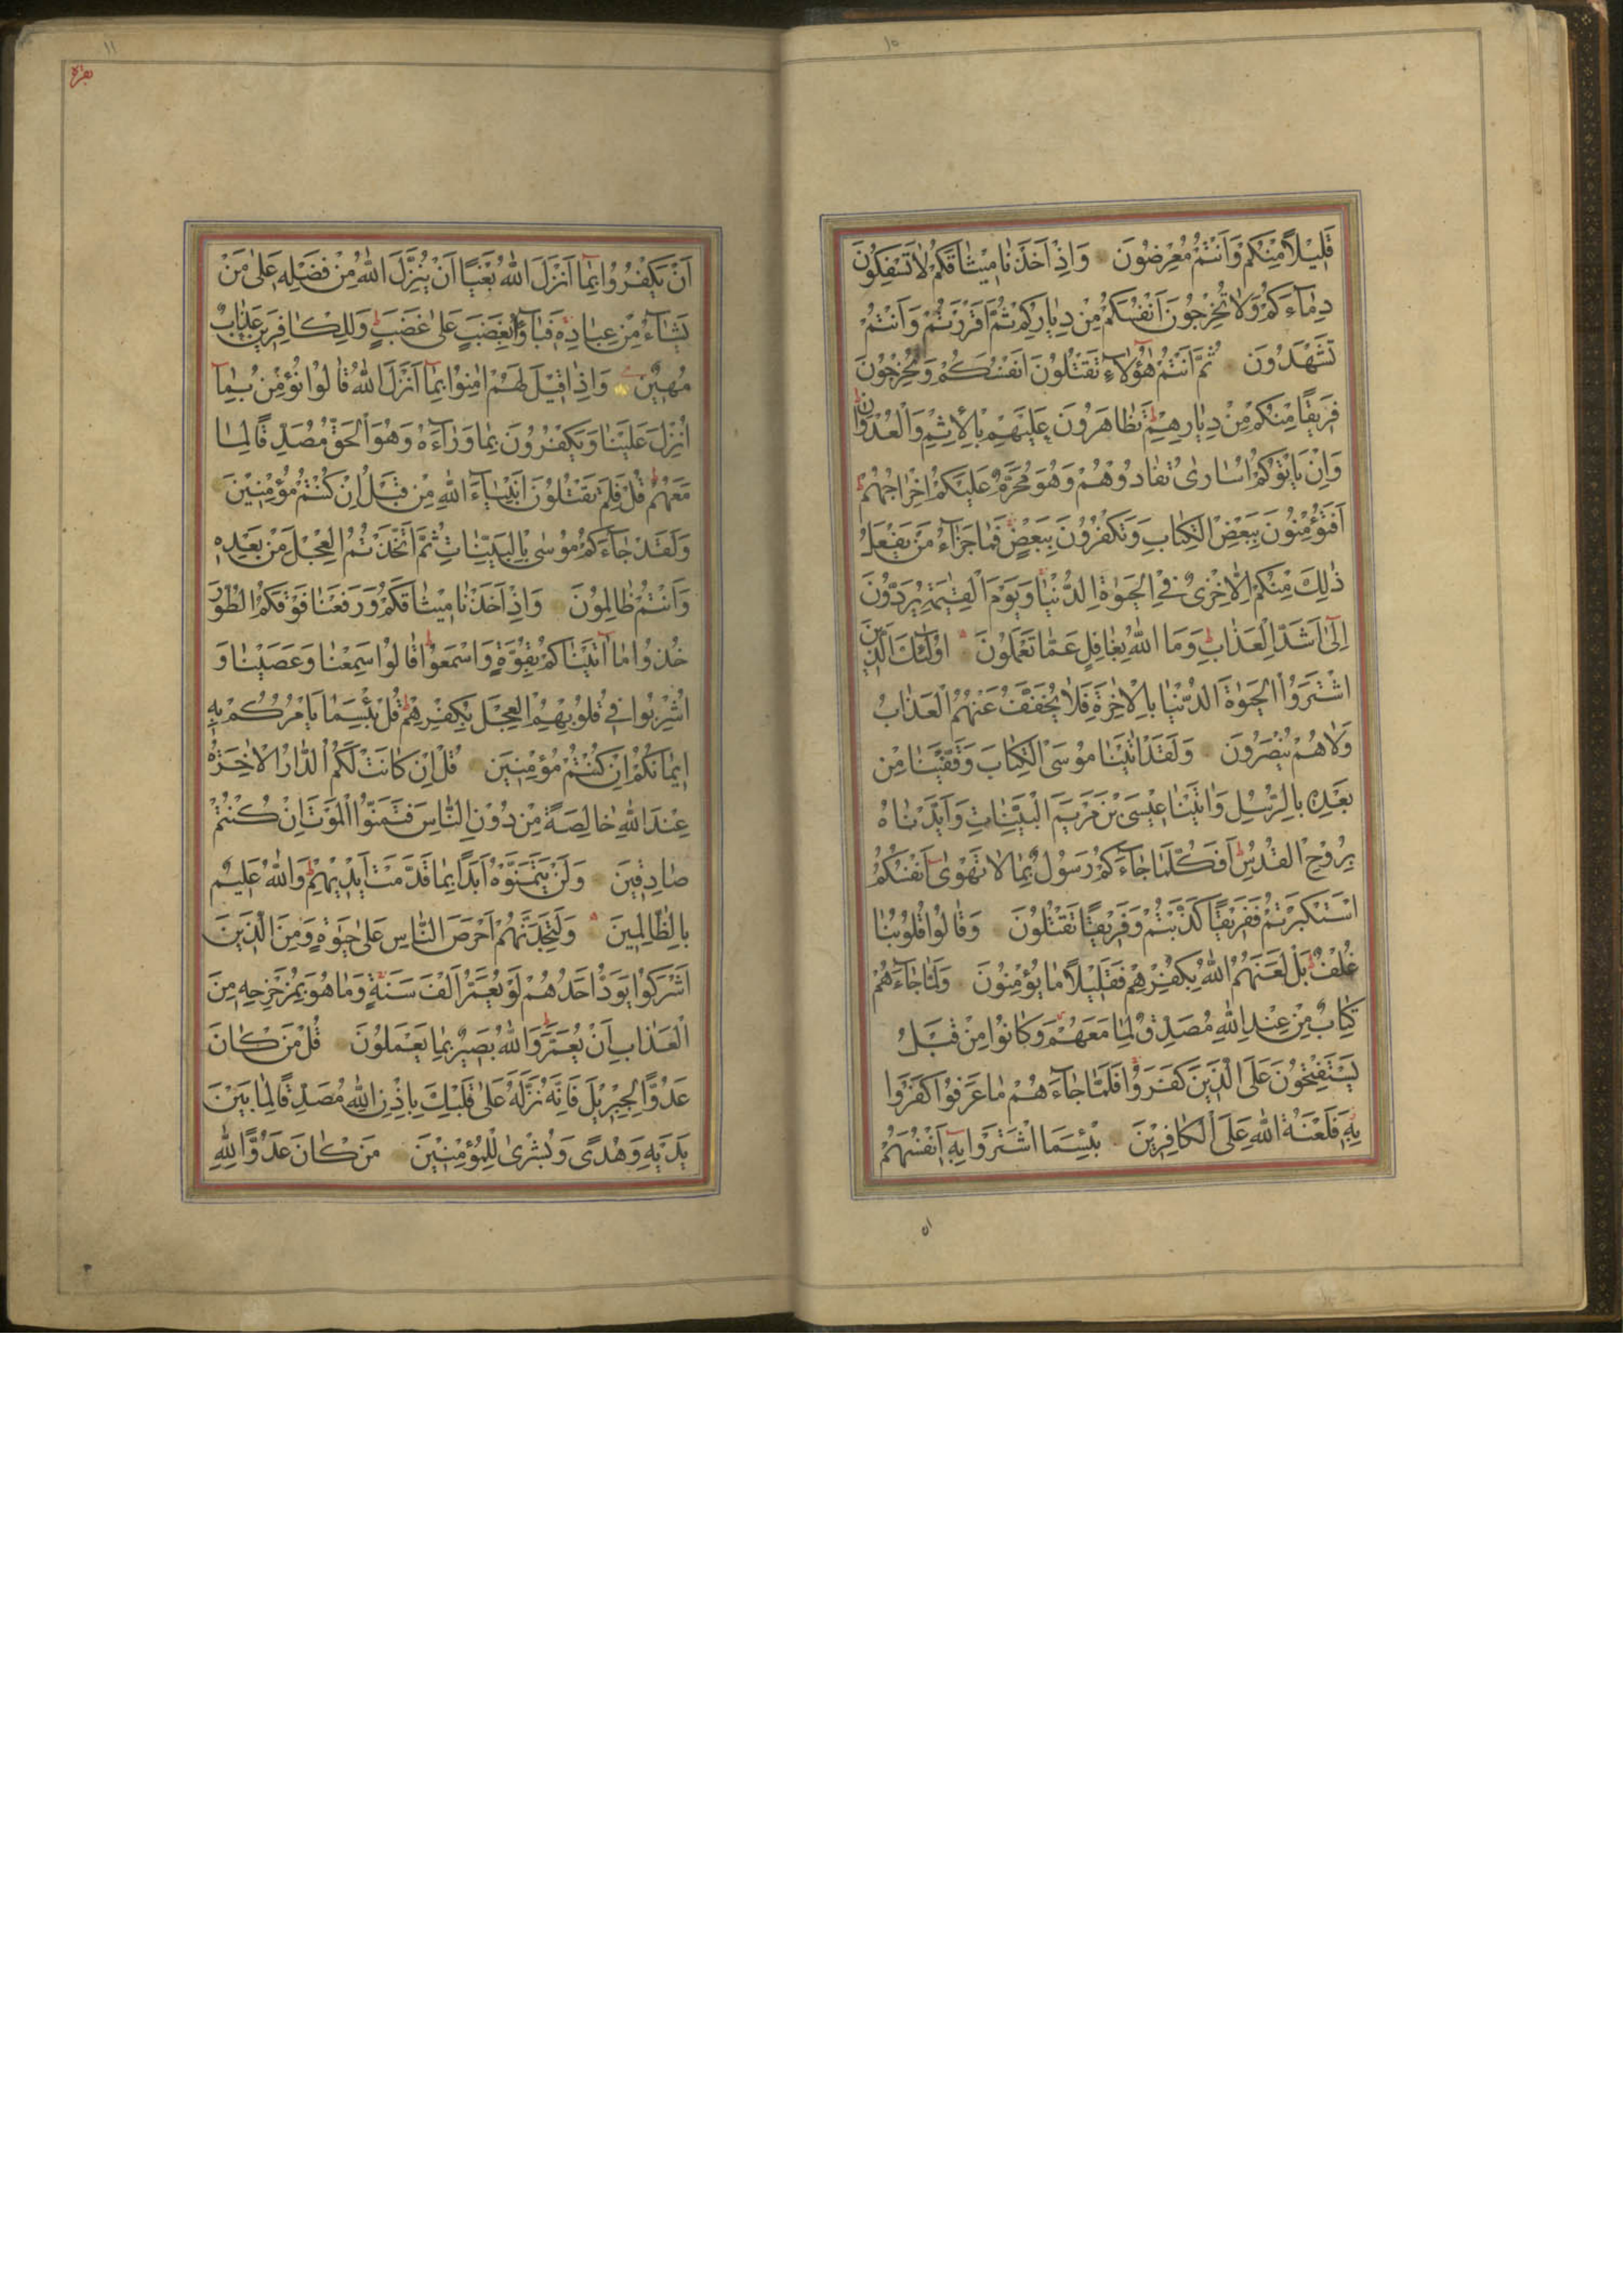 ١٠
قَلِيلًا مِنْكُمْ وَاَنْتُمْ مُعْرِضُونَ وَاِذْ اَخَذْنَا مِيثَاقَكُمْ لَا تَسْفِكُونَ
دِمَاءَكُمْ وَلَا تُخْرِجُونَ اَنْفُسَكُمْ مِنْ دِيَارِكُمْ ثُمَّ اَقْرَرْتُمْ وَاَنْتُمْ
تَشْهَدُونَ ثُمَّ اَنْتُمْ هٰؤُلَاءِ تَقْتُلُونَ اَنْفُسَكُمْ وَتُخْرِجُونَ
فَرِيقًا مِنْكُمْ مِنْ دِيَارِهِمْ تَظَاهَرُونَ عَلَيْهِمْ بِالْاِثْمِ وَالْعُدْوَانِ
وَاِنْ يَاْتُوكُمْ اُسَارٰى تُفَادُوهُمْ وَهُوَ مُحَرَّمٌ عَلَيْكُمْ اِخْرَاجُهُمْ
اَفَتُؤْمِنُونَ بِبَعْضِ الْكِتَابِ وَتَكْفُرُونَ بِبَعْضٍ فَمَا جَزَاءُ مَنْ يَفْعَلُ
ذٰلِكَ مِنْكُمْ اِلَّا خِزْىٌ فِى الْحَيٰوةِ الدُّنْيَا وَيَوْمَ الْقِيٰمَةِ يُرَدُّونَ
اِلٰى اَشَدِّ الْعَذَابِ وَمَا اللّٰهُ بِغَافِلٍ عَمَّا تَعْمَلُونَ اُولٰئِكَ الَّذِينَ
اشْتَرَوُا الْحَيٰوةَ الدُّنْيَا بِالْاٰخِرَةِ فَلَا يُخَفَّفُ عَنْهُمُ الْعَذَابُ
وَلَا هُمْ يُنْصَرُونَ وَلَقَدْ اٰتَيْنَا مُوسَى الْكِتَابَ وَقَفَّيْنَا مِنْ
بَعْدِهِ بِالرُّسُلِ وَاٰتَيْنَا عِيسَى بْنَ مَرْيَمَ الْبَيِّنَاتِ وَاَيَّدْنَاهُ
بِرُوحِ الْقُدُسِ اَفَكُلَّمَا جَاءَكُمْ رَسُولٌ بِمَا لَا تَهْوٰى اَنْفُسُكُمُ
اسْتَكْبَرْتُمْ فَفَرِيقًا كَذَّبْتُمْ وَفَرِيقًا تَقْتُلُونَ وَقَالُوا قُلُوبُنَا
غُلْفٌ بَلْ لَعَنَهُمُ اللّٰهُ بِكُفْرِهِمْ فَقَلِيلًا مَا يُؤْمِنُونَ وَلَمَّا جَاءَهُمْ
كِتَابٌ مِنْ عِنْدِ اللّٰهِ مُصَدِّقٌ لِمَا مَعَهُمْ وَكَانُوا مِنْ قَبْلُ
يَسْتَفْتِحُونَ عَلَى الَّذِينَ كَفَرُوا فَلَمَّا جَاءَهُمْ مَا عَرَفُوا كَفَرُوا
بِهِ فَلَعْنَةُ اللّٰهِ عَلَى الْكَافِرِينَ بِئْسَمَا اشْتَرَوْا بِهِ اَنْفُسَهُمْ
ان
١١
بقره
اَنْ يَكْفُرُوا بِمَا اَنْزَلَ اللّٰهُ بَغْيًا اَنْ يُنَزِّلَ اللّٰهُ مِنْ فَضْلِهِ عَلٰى مَنْ
يَشَاءُ مِنْ عِبَادِهِ فَبَاؤُ بِغَضَبٍ عَلٰى غَضَبٍ وَلِلْكَافِرِينَ عَذَابٌ
مُهِينٌ وَاِذَا قِيلَ لَهُمْ اٰمِنُوا بِمَا اَنْزَلَ اللّٰهُ قَالُوا نُؤْمِنُ بِمَا
اُنْزِلَ عَلَيْنَا وَيَكْفُرُونَ بِمَا وَرَاءَهُ وَهُوَ الْحَقُّ مُصَدِّقًا لِمَا
مَعَهُمْ قُلْ فَلِمَ تَقْتُلُونَ اَنْبِيَاءَ اللّٰهِ مِنْ قَبْلُ اِنْ كُنْتُمْ مُؤْمِنِينَ
وَلَقَدْ جَاءَكُمْ مُوسٰى بِالْبَيِّنَاتِ ثُمَّ اتَّخَذْتُمُ الْعِجْلَ مِنْ بَعْدِهِ
وَاَنْتُمْ ظَالِمُونَ وَاِذْ اَخَذْنَا مِيثَاقَكُمْ وَرَفَعْنَا فَوْقَكُمُ الطُّورَ
خُذُوا مَا اٰتَيْنَاكُمْ بِقُوَّةٍ وَاسْمَعُوا قَالُوا سَمِعْنَا وَعَصَيْنَا وَ
اُشْرِبُوا فِى قُلُوبِهِمُ الْعِجْلَ بِكُفْرِهِمْ قُلْ بِئْسَمَا يَاْمُرُكُمْ بِهِ
اِيمَانُكُمْ اِنْ كُنْتُمْ مُؤْمِنِينَ قُلْ اِنْ كَانَتْ لَكُمُ الدَّارُ الْاٰخِرَةُ
عِنْدَ اللّٰهِ خَالِصَةً مِنْ دُونِ النَّاسِ فَتَمَنَّوُا الْمَوْتَ اِنْ كُنْتُمْ
صَادِقِينَ وَلَنْ يَتَمَنَّوْهُ اَبَدًا بِمَا قَدَّمَتْ اَيْدِيهِمْ وَاللّٰهُ عَلِيمٌ
بِالظَّالِمِينَ وَلَتَجِدَنَّهُمْ اَحْرَصَ النَّاسِ عَلٰى حَيٰوةٍ وَمِنَ الَّذِينَ
اَشْرَكُوا يَوَدُّ اَحَدُهُمْ لَوْ يُعَمَّرُ اَلْفَ سَنَةٍ وَمَا هُوَ بِمُزَحْزِحِهِ مِنَ
الْعَذَابِ اَنْ يُعَمَّرَ وَاللّٰهُ بَصِيرٌ بِمَا يَعْمَلُونَ قُلْ مَنْ كَانَ
عَدُوًّا لِجِبْرِيلَ فَاِنَّهُ نَزَّلَهُ عَلٰى قَلْبِكَ بِاِذْنِ اللّٰهِ مُصَدِّقًا لِمَا بَيْنَ
يَدَيْهِ وَهُدًى وَبُشْرٰى لِلْمُؤْمِنِينَ مَنْ كَانَ عَدُوًّا لِلّٰهِ